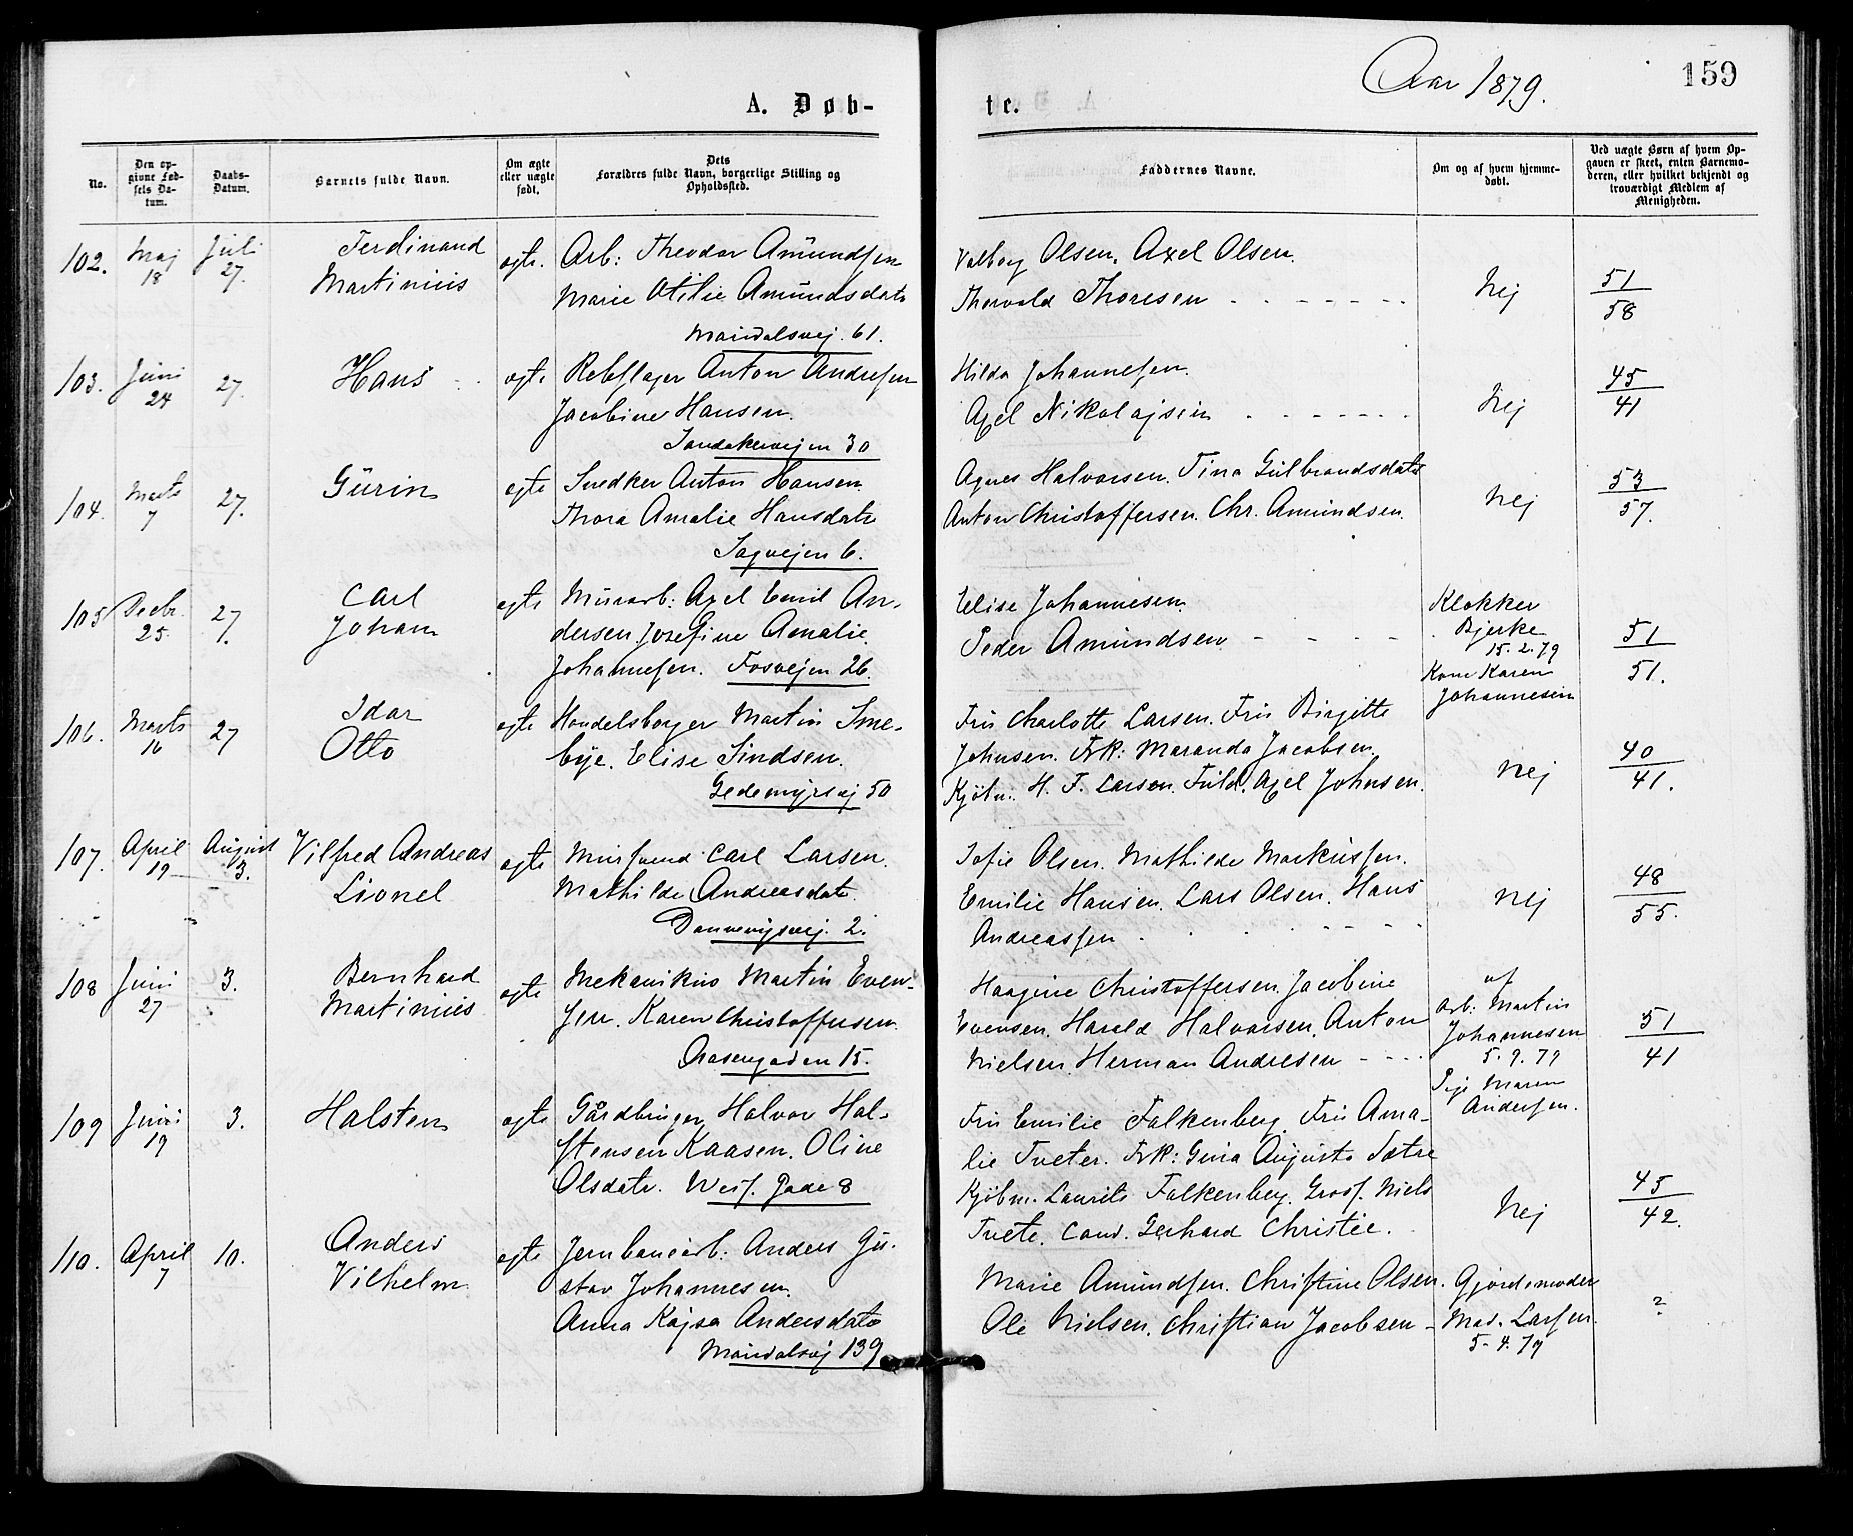 Aar 1879.
159
A. Døb-
te.
No.
Den op-
givne Fød-
sels Da-
tum.
Daabs-
Datum.
Barnets fulde Navn.
Om ægte
eller uægte
født.
Dets
Forældres fulde Navn, borgerlige Stilling og
Opholdssted.
Faddernes Navne.
Om og af hvem hjemme-
døbt.
Ved uægte Børn af hvem Op-
gaven er skeet, enten Barnemo-
deren, eller hvilket bekjendt og
troværdigt Medlem af
Menigheden.
102.
Maj
18
Juli
27.
Ferdinand
Martinius
ægte.
Arb: Theodor Amundsen
Marie Otilie Amundsdatr
Maridalsvej. 61.
Valborg Olsen. Axel Olsen.
Thorvald Thoresen
Nej
51
58
103.
Juni
24
27.
Hans
ægte
Rebslager Anton Andresen
Jacobine Hansen.
Sandakervejen 30
Hilda Johannesen.
Axel Nikolajsen
Nej
45
41
104.
Marts
7
27.
Gurin
ægte
Snedker Anton Hansen
Thora Amalie Hansdatr
Sagvejen 6.
Agnes Halvorsen. Tina Gulbrandsdatr
Anton Christoffersen. Chr. Amundsen.
Nej
53
57.
105
Decbr.
25.
27.
Carl
Johan
ægte
Murarb: Axel Emil An-
dersen. Josefine Amalie
Johannesen. Fosvejen 26.
Elise Johannesen.
Peder Amundsen
Klokker
Bjerke
15.2.79
Kone Karen
Johannesen
51
51.
106.
Marts
16
27
Idar
Otto
ægte
Handelsborger Martin Sme-
bye. Elise Sindsen.
Gedemyrsvej 50
Fru Charlotte Larsen. Fru Birgitte
Johnsen. Frk: Maranda Jacobsen.
Kjøbm. H. F. Larsen. Fuld. Axel Johnsen.
Nej
40
41.
107.
April
19
August
3.
Vilfred Andreas
Lionel
ægte
Mursvend Carl Larsen.
Mathilde Andreasdatr.
Dannevigsvej. 2.
Sofie Olsen. Mathilde Markussen.
Emilie Hansen. Lars Olsen. Hans
Andreassen
Nej
48
55.
108
Juni
27
3.
Bernhard
Martinius
ægte
Mekanikus Martin Even-
sen. Karen Christoffersen.
Aasengaden 15.
Haagine Christoffersen. Jacobine
Evensen. Harald Halvorsen. Anton
Nielsen. Herman Andresen
af
Arb: Martin
Johannesen
5.9.79
Pige Maren
Andersen.
51
41
109
Juni
19
3.
Halsten
ægte
Gårdbruger Halvor Hal-
stensen Kaasen. Oline
Olsdatr. Wess. Gade 8
Fru Emilie Falkenberg. Fru Ama-
lie Tveter. Frk: Gina Augusta Sætre
Kjøbm. Laurits Falkenberg. Gross. Niels
Tvete. Cand. Gerhard Christie.
Nej
45
42.
110.
April
7
10.
Anders
Vilhelm
ægte
Jernbanearb: Anders Gu-
stav Johannesen.
Anna Kajsa Andersdatr
Maridalsvej 139
Marie Amundsen. Christine Olsen.
Ole Nielsen. Christian Jacobsen
Gjordemoder
Mad. Larsen.
5.4.79
?